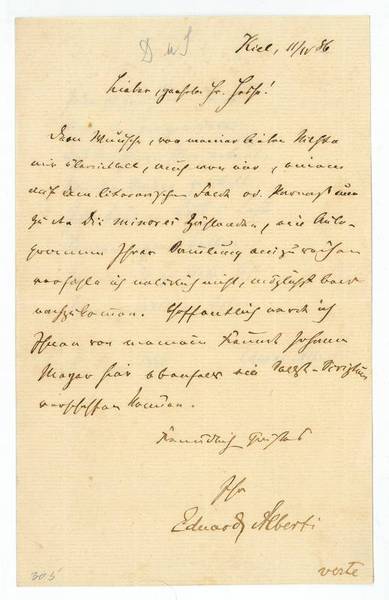 D u S
Kiel, 11/IV 86
Lieber, geehrter Hr.
Dem Wunsche, von meiner lieben Nichte
mir übermittelt, auch von mir, einem
auf dem literarischen Felde od. Parnass nur
zu den Dii minores Zählenden, ein Auto-
gramm Ihrer Samlung einzureihen
verfehle ich natürlich nicht, möglichst bald
nachzukommen. Hoffentlich werde ich
Ihnen von meinem Freund Johann
Meyer hier ebenfalls ein Selbst-Scriptum
verschaffen können.
Freundlich grüßend
Ihr
Eduard Alberti
30.5
verte